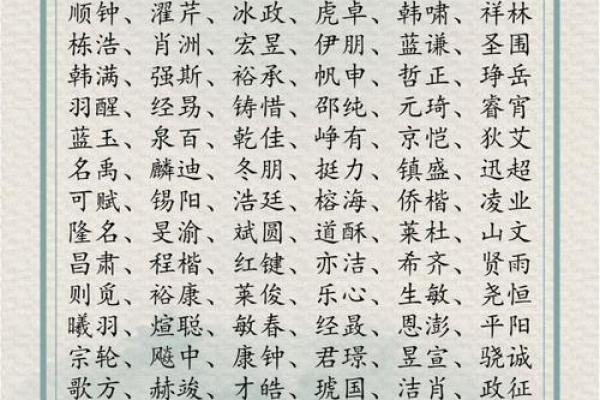 顺钟、濯芹、冰政、虎卓、韩啸、祥林
栋浩、肖洲、宏昱、伊朋、蓝谦、圣围
韩满、强斯、裕承、帆申、哲正、琤岳
羽醒、经勗、铸惜、邵纯、元琦、睿宵
蓝玉、泉百、乾佳、峥有、京恺、狄艾
名禹、麟迪、冬朋、挺力、镇盛、迅超
可赋、锡阳、浩廷、榕海、侨楷、凌业
隆名、旻渝、斌圆、道酥、莱杜、山文
昌肃、程楷、红键、亦洁、希齐、贤雨
则觅、裕康、莱俊、乐心、生敏、尧恒
曦羽、煊聪、敏春、经晸、恩澎、平阳
宗轮、飚中、康钟、君璟、昱宣、骁诚
歌方、赫竣、才皓、琥国、洁肖、政征